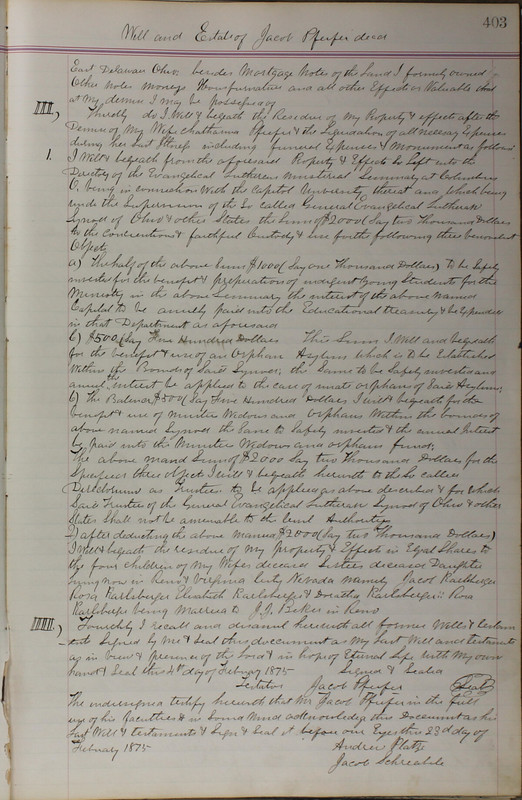 403
Will and Estate of Jacob Pfeifer decd
East Delaware Ohio. besides Mortgage Notes of the Land I formerly owned
Other Notes moneys Housfurnature and all other Effects or Valuable
at My demis I may be possessed of
III, Thirdly do I Will & begeath the Residue of My Property & effects after the
Demis of My Wife Chatharina Pfeifer & the Liquidation of all necessary Expenses
during her Last including funeral Expences & Monument as follows
1. I Will & begeath from the aforesaid Property & Effects So Left unto the
Directory of the Evangelical Lutheran Ministerial Seminary at Columbus
O. being in connection With the Capitol University thereat and which being
under the Supervision of the So called General Evangelical Lutheran
Synod of Ohio & other States the Sum of $2000 (Say two Thousand Dollars
to the Contientious & faithful Custody & use for the following three benevolent
Objects
a) The half of the above Sum $1000 (Say one Thousand Dollars) to be Safely
invested for the benefit & preparation of indigent young Students for the
Ministry in the above Seminary the interest of the above named
Capital to be anuely paid into the Educational treasury & be Expended
in that Department as aforesaid
b) $500 (Say Five Hundred Dollars This Sum I Will and begeath
for the benefit & use of an Orphan Asylum Which is to be Established
Within the Bounds of Said Synod; the Same to be Safely invested and
anuel interest be applied to the care of inmate orphans of Said Asylum;
c) The Balance $500 (Say Five Hundred Dollars I will & begeath for the
benefit & use of minister Widows and Orphans Within the bounds of
above named Synod the Same to Safely invested & the annual Interest
be paid into the Minister Widows and orphans fund;
The above named Sum of $2000 Say two Thousand Dollars for the
Specified three objects I will & begeath herewith to the So called
as Trustees to be applied as above described & for which
Said Trustees of the General Evangelical Lutheran Synod of Ohio & other
States Shall not be amenable to the Civil Authorities
2) after deducting the above named $2000 (Say two Thousand Dollars)
I Will & begeath the residue of My property & Effects in Equal Shares to
the four children of My Wifes deceased Sisters deceased Daughter
living now in Reno & Virginia City Nevada namely Jacob Karlsberger
Rosa Karlsberger Elizabeth Karlsberger & Dorathea Karlsberger: Rosa
Karlsberger being Married to J.J. Becker in Reno
IIII. Fourthly I recall and disannul herewith all former Wills & testam
ents Signed by Me & Seal this document as My Last Will and testament
as in View & presence of the Lord & in hope of Eternal Life with My own
hand & Seal this 4th day of February 1875 Signed & Sealed
Testator Jacob Pfeifer (Seal)
The undersigned testify herewith that Mr Jacob Pfeifer in the full
use of his faculties & in Sound Mind acknowledge this Document as his
Last Will & testament & Sign & Seal it before our Eyes this 23d day of
February 1875 Andrew Platz
Jacob Schreable